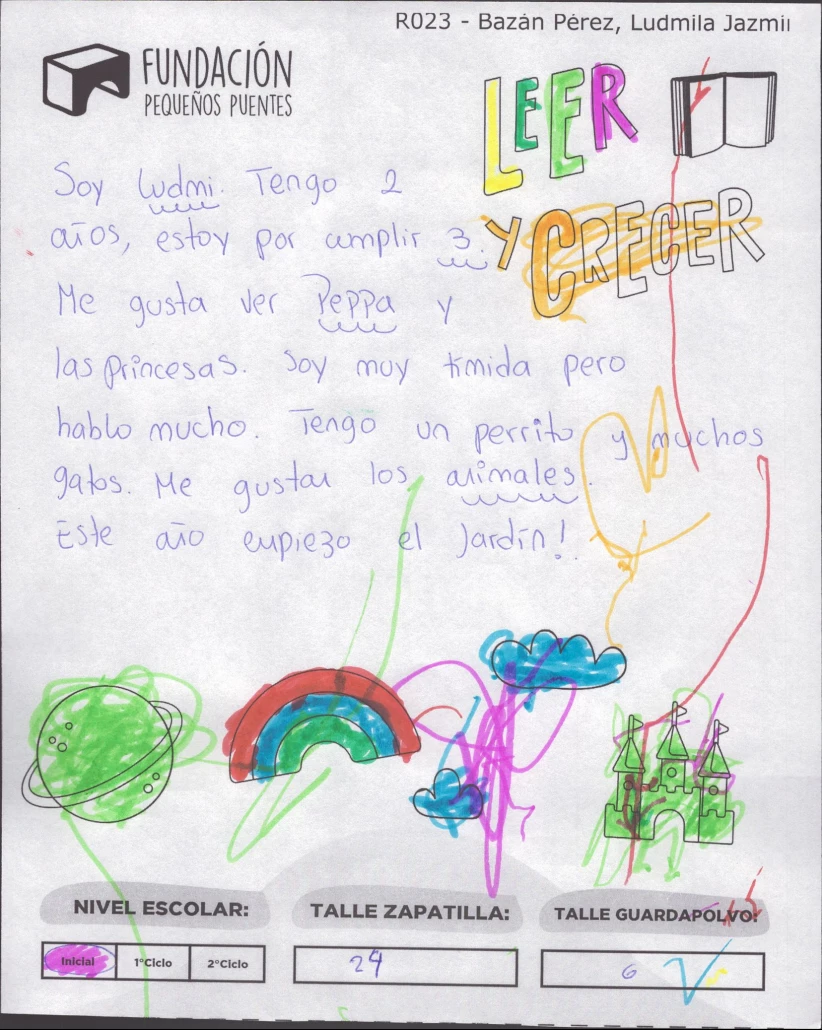 R023 - Bazán Pérez, Ludmila Jazmi
FUNDACIÓN
PEQUEÑOS PUENTES
LEER
Y CRECER
Soy Ludmi. Tengo 2
años, estoy por cumplir 3.
Me gusta ver Peppa y
las princesas. Soy muy timida pero
hablo mucho. Tengo un perrito y muchos
gatos. Me gustan los animales.
Este año empiezo el Jardín!
NIVEL ESCOLAR:
TALLE ZAPATILLA:
TALLE GUARDAPOLVO:
Inicial
1°Ciclo
2°Ciclo
24
6